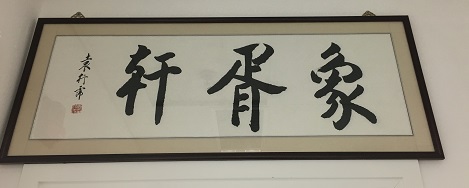 象胥轩
袁行霈